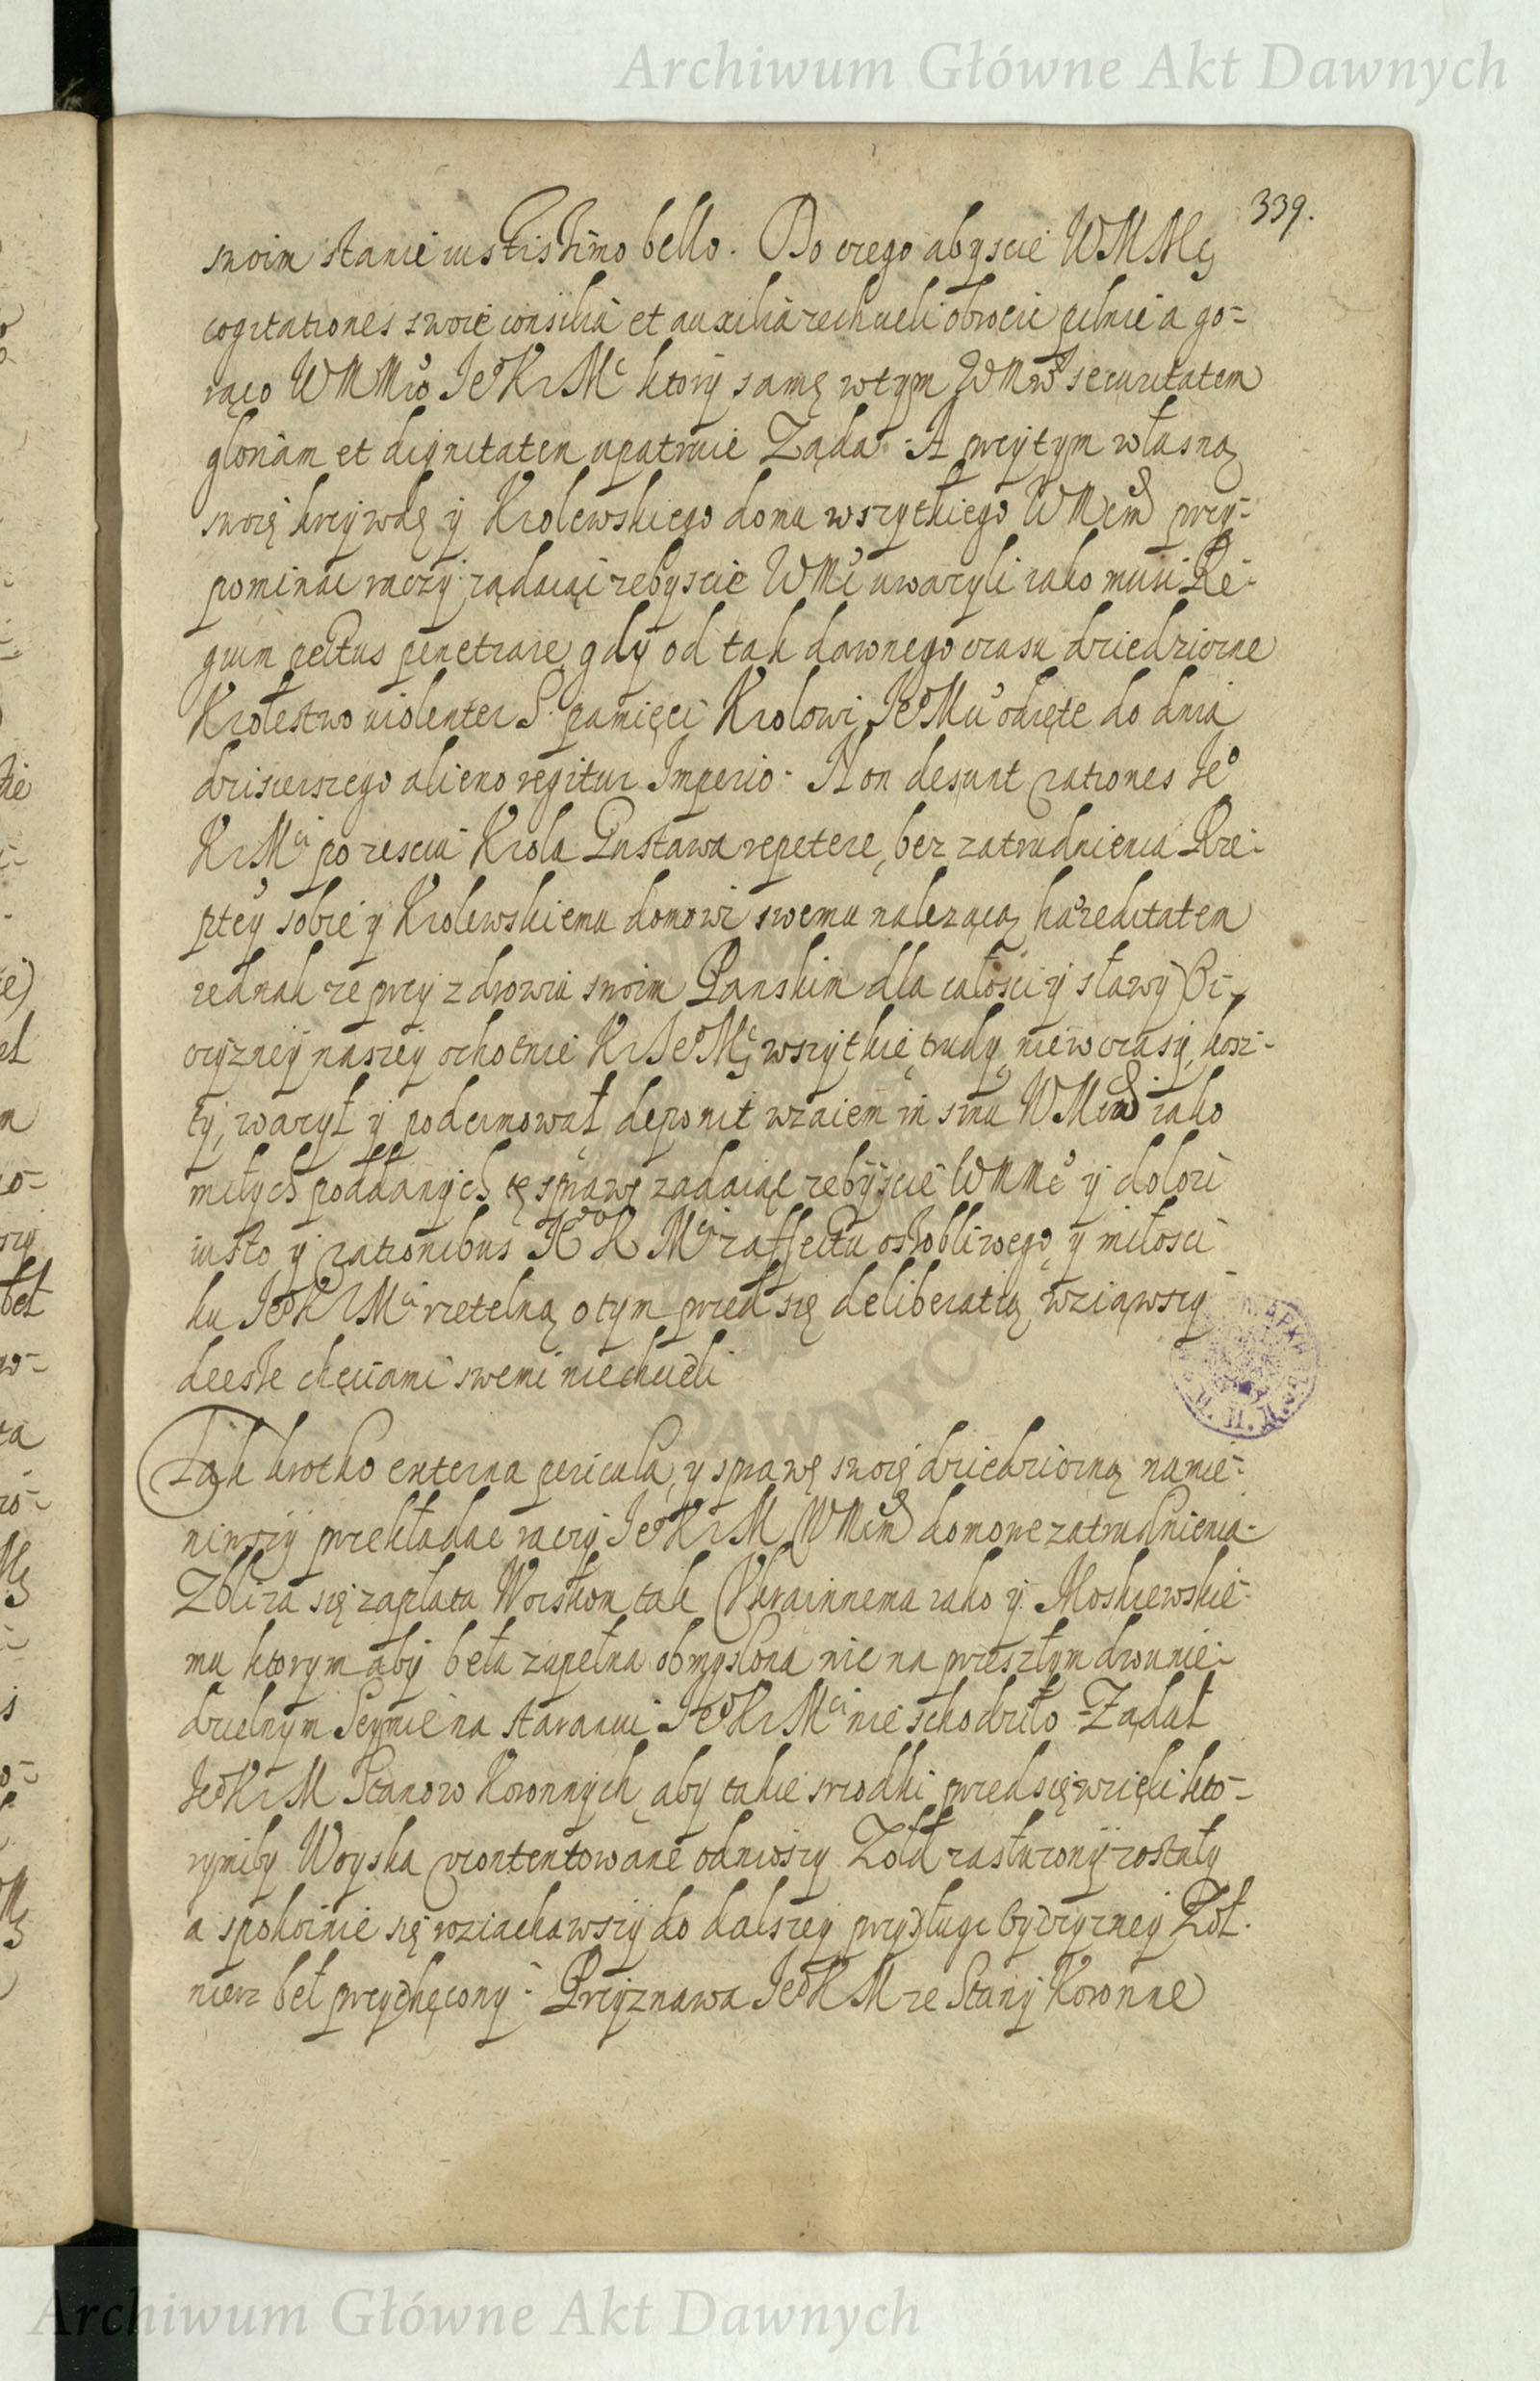 Archiwum Główne Akt Dawnych
339.
swoim stanie iustissimo bello. Do czego abyscie WMMę
cogitationes swoie consilia et auxilia zechcieli obrocic pilnie a go-
rąco WMMw Je⁰KrMc ktory samą wtym WMw securitatem
gloriam et dignitatem upatruie Ząda. A przytym własną
swoię krzywdę y Krolewskiego domu wszytkiego WMciom przy-
pominac raczy ządaiąc zebyscie WMc uwazyli iako musi Re-
gium pectus penetrare, gdy od tak dawnego czasu dziedziczne
Krolestwo violenter S. pamięci Krolowi Je⁰Mci odięte do dnia
dzisieyszego alieno regitur Imperio. Non desunt rationes Je⁰
KrMci po zesciu Krola Gustawa repetere, bez zatrudnienia Rze-
ptey sobie y Krolewskiemu domowi swemu nalezącą haereditatem
iednak ze przy zdrowiu swoim Panskim dla całosci y sławy Oy-
czyzney naszey ochotnie KrJe⁰Mc wszytkie trudy, niewczasy, kosz-
ty, wazył y podeimował, deponit wzaiem in sinu WMciom iako
miłych poddanych tę sprawę zadaiąc zebyscie WMMc y dolori
iusto y rationibus J⁰KMci z affectu osobliwego y miłosci
ku Je⁰KrMci rzetelną o tym przed się deliberatią wziąwszy
deesse chęciami swemi niechcieli
Tak krotko externa pericula, y sprawę swoię dziedziczną namie-
niwszy przekładac raczy Je⁰KrM WMciom domowe zatrudnienia.
Zbliza się zapłata Woiskom tak Ukrainnemu iako y Moskiewskie-
mu ktorym aby beła zupełna obmyslona nic na przeszłym dwunie-
dzielnym Seymie na staraniu Je⁰KrMci nie schodziło. Ządał
Je⁰KrM Stanow Koronnych aby takie srzodki przedsięwzięli kto-
rymiby Woyska contentowane odniosszy Zołd zasłuzony zostały
a spokoinie się roziachawszy do dalszey przysługi Oyczyzney Zoł-
nierz beł przychęcony. Przyznawa Je⁰KM ze Stany Koronne
Archiwum Główne Akt Dawnych